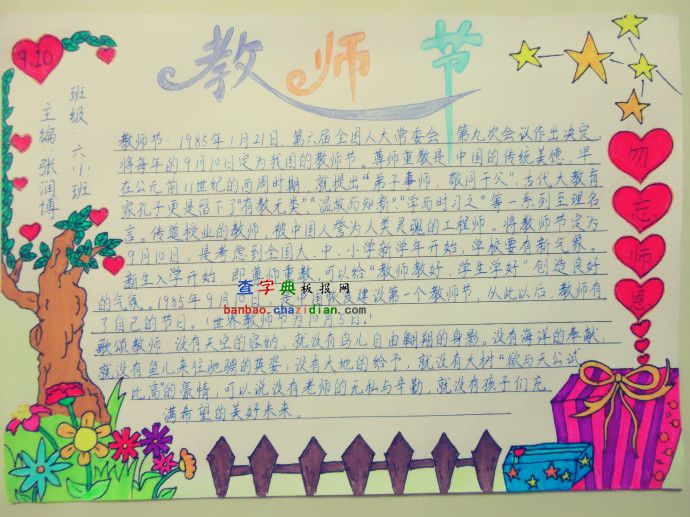 9.10
教师节
班级：六小班
主编 张润博
勿忘师恩
教师节：1985年1月21日，第六届全国人大常委会 第九次会议作出决定
将每年的9月10日定为我国的教师节。尊师重教是中国的传统美德，早
在公元前11世纪的西周时期，就提出"弟子事师，敬同于父"，古代大教育
家孔子更是留下了"有教无类"、"温故而知新"、"学而时习之"等一系列至理名
言。传道授业的教师，被中国人誉为人类灵魂的工程师。将教师节定为
9月10日，是考虑到全国大、中、小学新学年开始，学校要有新气象。
新生入学开始，即尊师重教，可以给"教师教好，学生学好"创造良好
的气氛。1985年9月10日，是中国恢复建设第一个教师节，从此以后，教师有
了自己的节日。（世界教师节为10月5日）
歌颂教师 没有天空的容纳，就没有鸟儿自由翱翔的身影。没有海洋的奉献，
就没有鱼儿来往驰骋的英姿；没有大地的给予，就没有大树"欲与天公试
比高"的豪情；可以说没有老师的无私与辛勤，就没有孩子们充
满希望的美好未来。
查字典板报网
banbao.chazidian.com